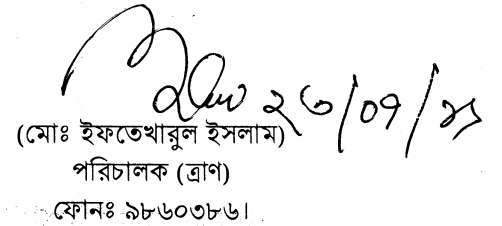 ২৩/০৭/
(মোঃ ইফতেখারুল ইসলাম)
পরিচালক (ত্রাণ)
ফোনঃ ৯৮৬০৩৮৬।